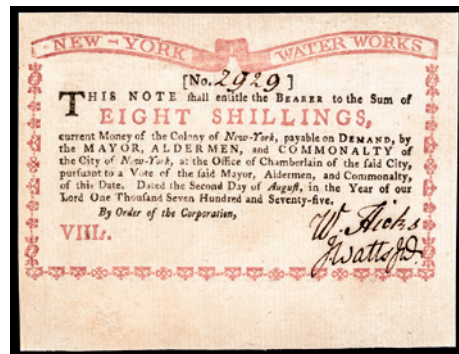 NEW-YORK WATER WORKS
[No. 2929]
THIS NOTE ſhall entitle the BEARER to the Sum of
EIGHT SHILLINGS,
current Money of the Colony of New-York, payable on DEMAND, by
the MAYOR, ALDERMEN, and COMMONALTY of
the City of New-York, at the Office of Chamberlain of the ſaid City,
purſuant to a Vote of the ſaid Mayor, Aldermen, and Commonalty,
of this Date. Dated the Second Day of Auguſt, in the Year of our
Lord One Thouſand Seven Hundred and Seventy-five.
By Order of the Corporation,
VIIIſ.
W. Hicks
J Watts Jr.